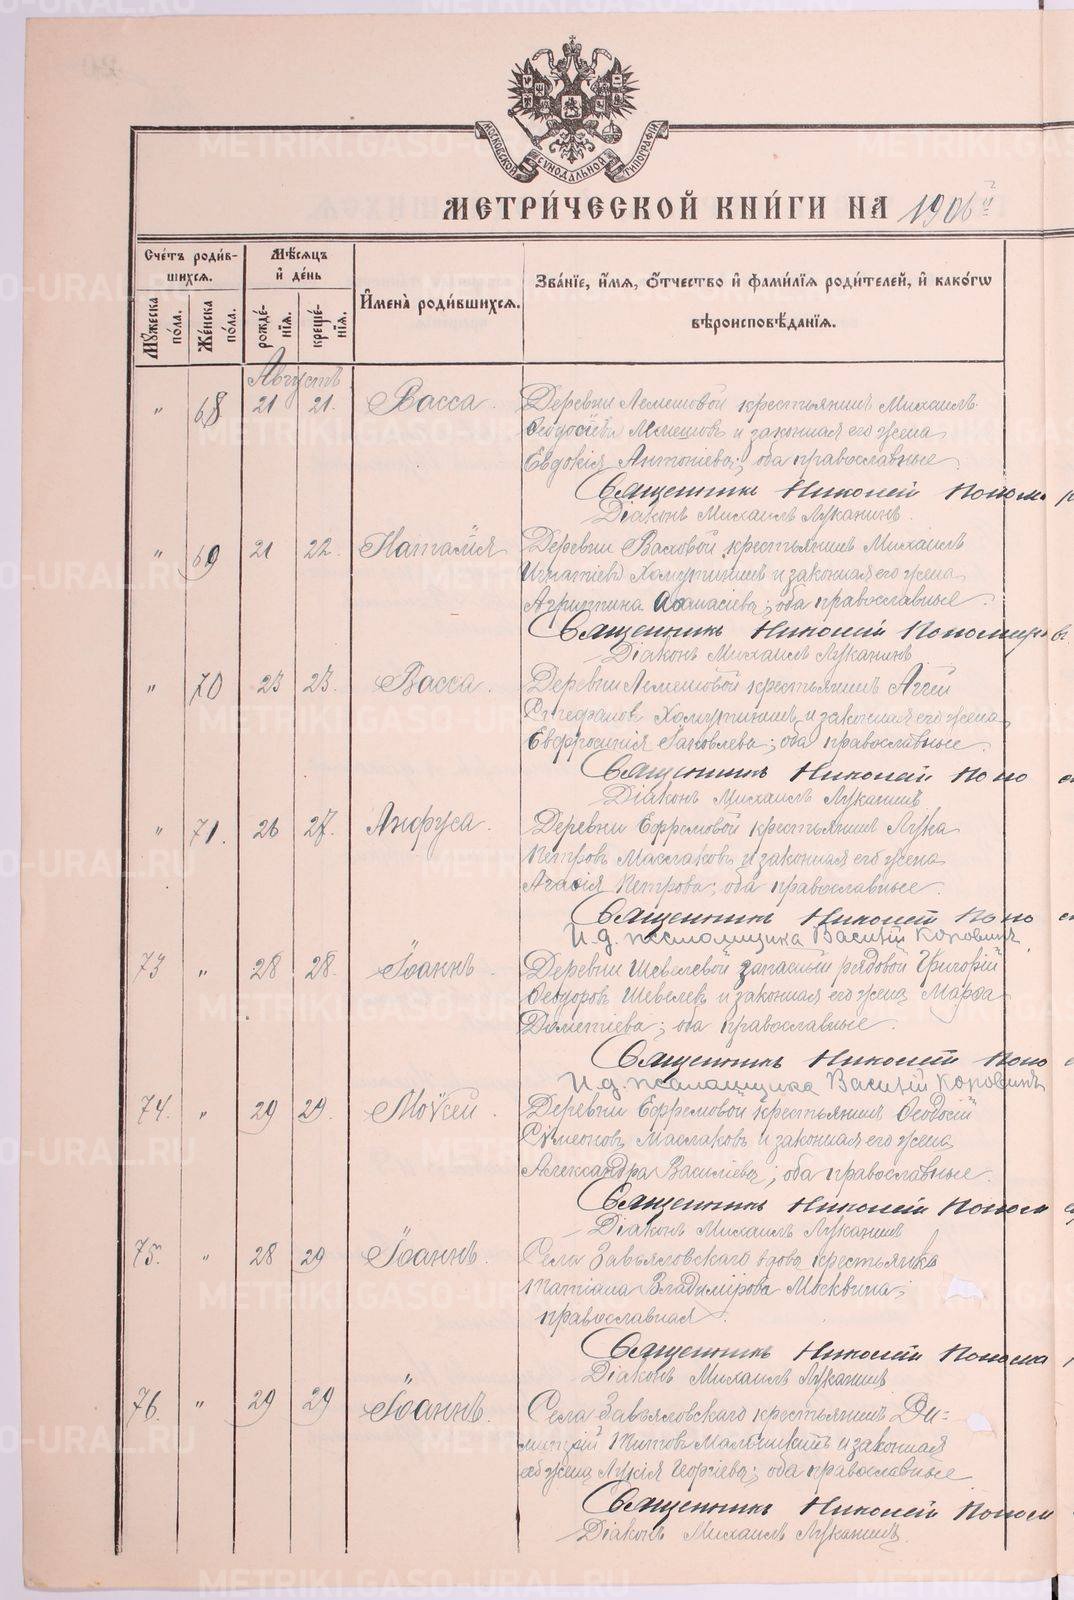 МОСКОВСКОЙ СѴНОДАЛЬНОЙ ТИПОГРАФІИ
МЕТРИ́ЧЕСКОЙ КНИ́ГИ НА 1906 й
Сче́тъ роди́в-
шихся.
Мѣ́сяцъ
и҆ де́нь
Му́жеска по́ла.
Же́нска по́ла.
рожде́-
нїя.
креще́-
нїя.
И҆мена̀ роди́вшихся.
Зва́нїе, и҆́мя, ѻ҆́тчество и҆ фами́лїя роди́телей, и҆ како́гѡ
вѣроисповѣ́данїя.
Августъ
" 68 21 21. Васса. Деревни Лемешовой крестьянинъ Михаилъ
Ѳеодосіевъ Лемешовъ и законная его жена
Евдокія Антоніева; оба православные.
Священникъ Николай Поном
Діаконъ Михаилъ Луканинъ.
" 69 21 22. Наталія Деревни Ваховой крестьянинъ Михаилъ
Игнатіевъ Хомутининъ и законная его жена
Агриппина Аѳанасіева; оба православные.
Священникъ Николай Пономарев
Діаконъ Михаилъ Луканинъ
" 70 23 23. Васса. Деревни Лемешовой крестьянинъ Аггей
Стефановъ Хомутининъ и законная его жена
Евфросинія Іаковлева; оба православные.
Священникъ Николай Поно
Діаконъ Михаилъ Луканинъ
" 71. 26 27. Анфуса. Деревни Ефремовой крестьянинъ Лука
Петровъ Маслаковъ и законная его жена
Агафія Петрова; оба православные.
Священникъ Николай Поно
И.д. псаломщика Василій Коровинъ
73 " 28 28. Іоаннъ. Деревни Шевелевой запасный рядовой Григорій
Ѳеодоровъ Шевелевъ и законная его жена Марѳа
Дометіева; оба православные.
Священникъ Николай Поно
И.д. псаломщика Василій Коровинъ
74. " 29 29. Моѵсей. Деревни Ефремовой крестьянинъ Ѳеодосій
Сѵмеоновъ Маслаковъ и законная его жена
Александра Василіева; оба православные.
Священникъ Николай Поном
Діаконъ Михаилъ Луканинъ
75. " 28 29 Іоаннъ. Села Завьяловскаго вдова крестьянка
Татіана Владимірова Москвина;
православная.
Священникъ Николай Понома
Діаконъ Михаилъ Луканинъ
76. " 29 29 Іоаннъ. Села Завьяловскаго крестьянинъ Ди-
митрій Титовъ и законная
его жена Лукія Георгіева; оба православные
Священникъ Николай Поном
Діаконъ Михаилъ Луканинъ
METRIKI.GASO-URAL.RU